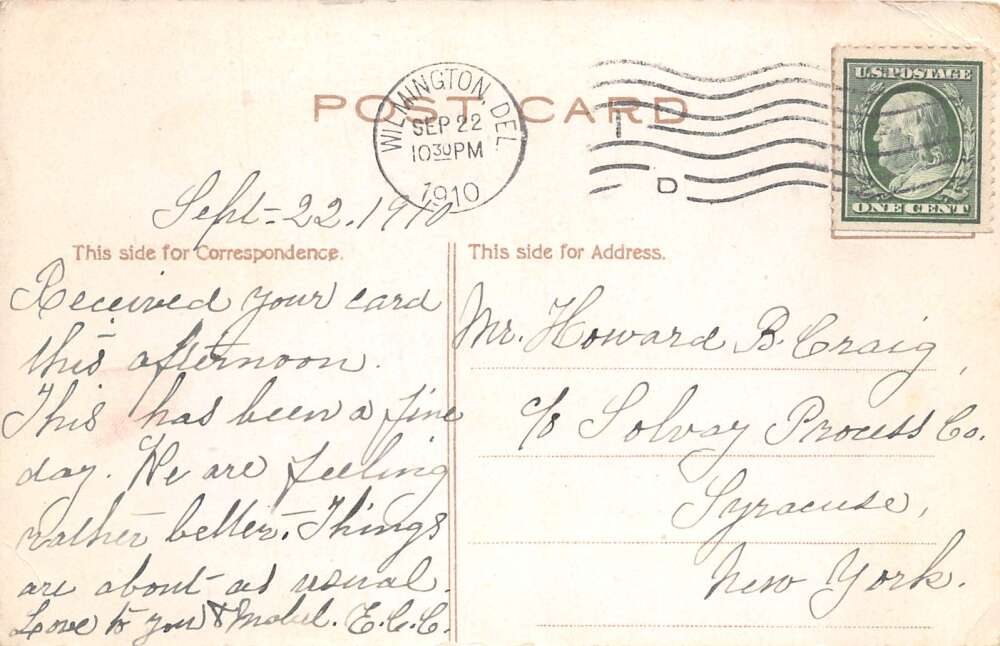 POST CARD
WILMINGTON, DEL.
SEP 22
10 30 PM
1910
T
D
U.S. POSTAGE
ONE CENT
Sept - 22. 1910
This side for Correspondence.
Received your card
this afternoon.
This has been a fine
day. We are feeling
rather better. Things
are about as usual.
Love to you & Mabel. E.C.C.
This side for Address.
Mr. Howard B. Craig,
c/o Solvay Process Co.
Syracuse,
New York.